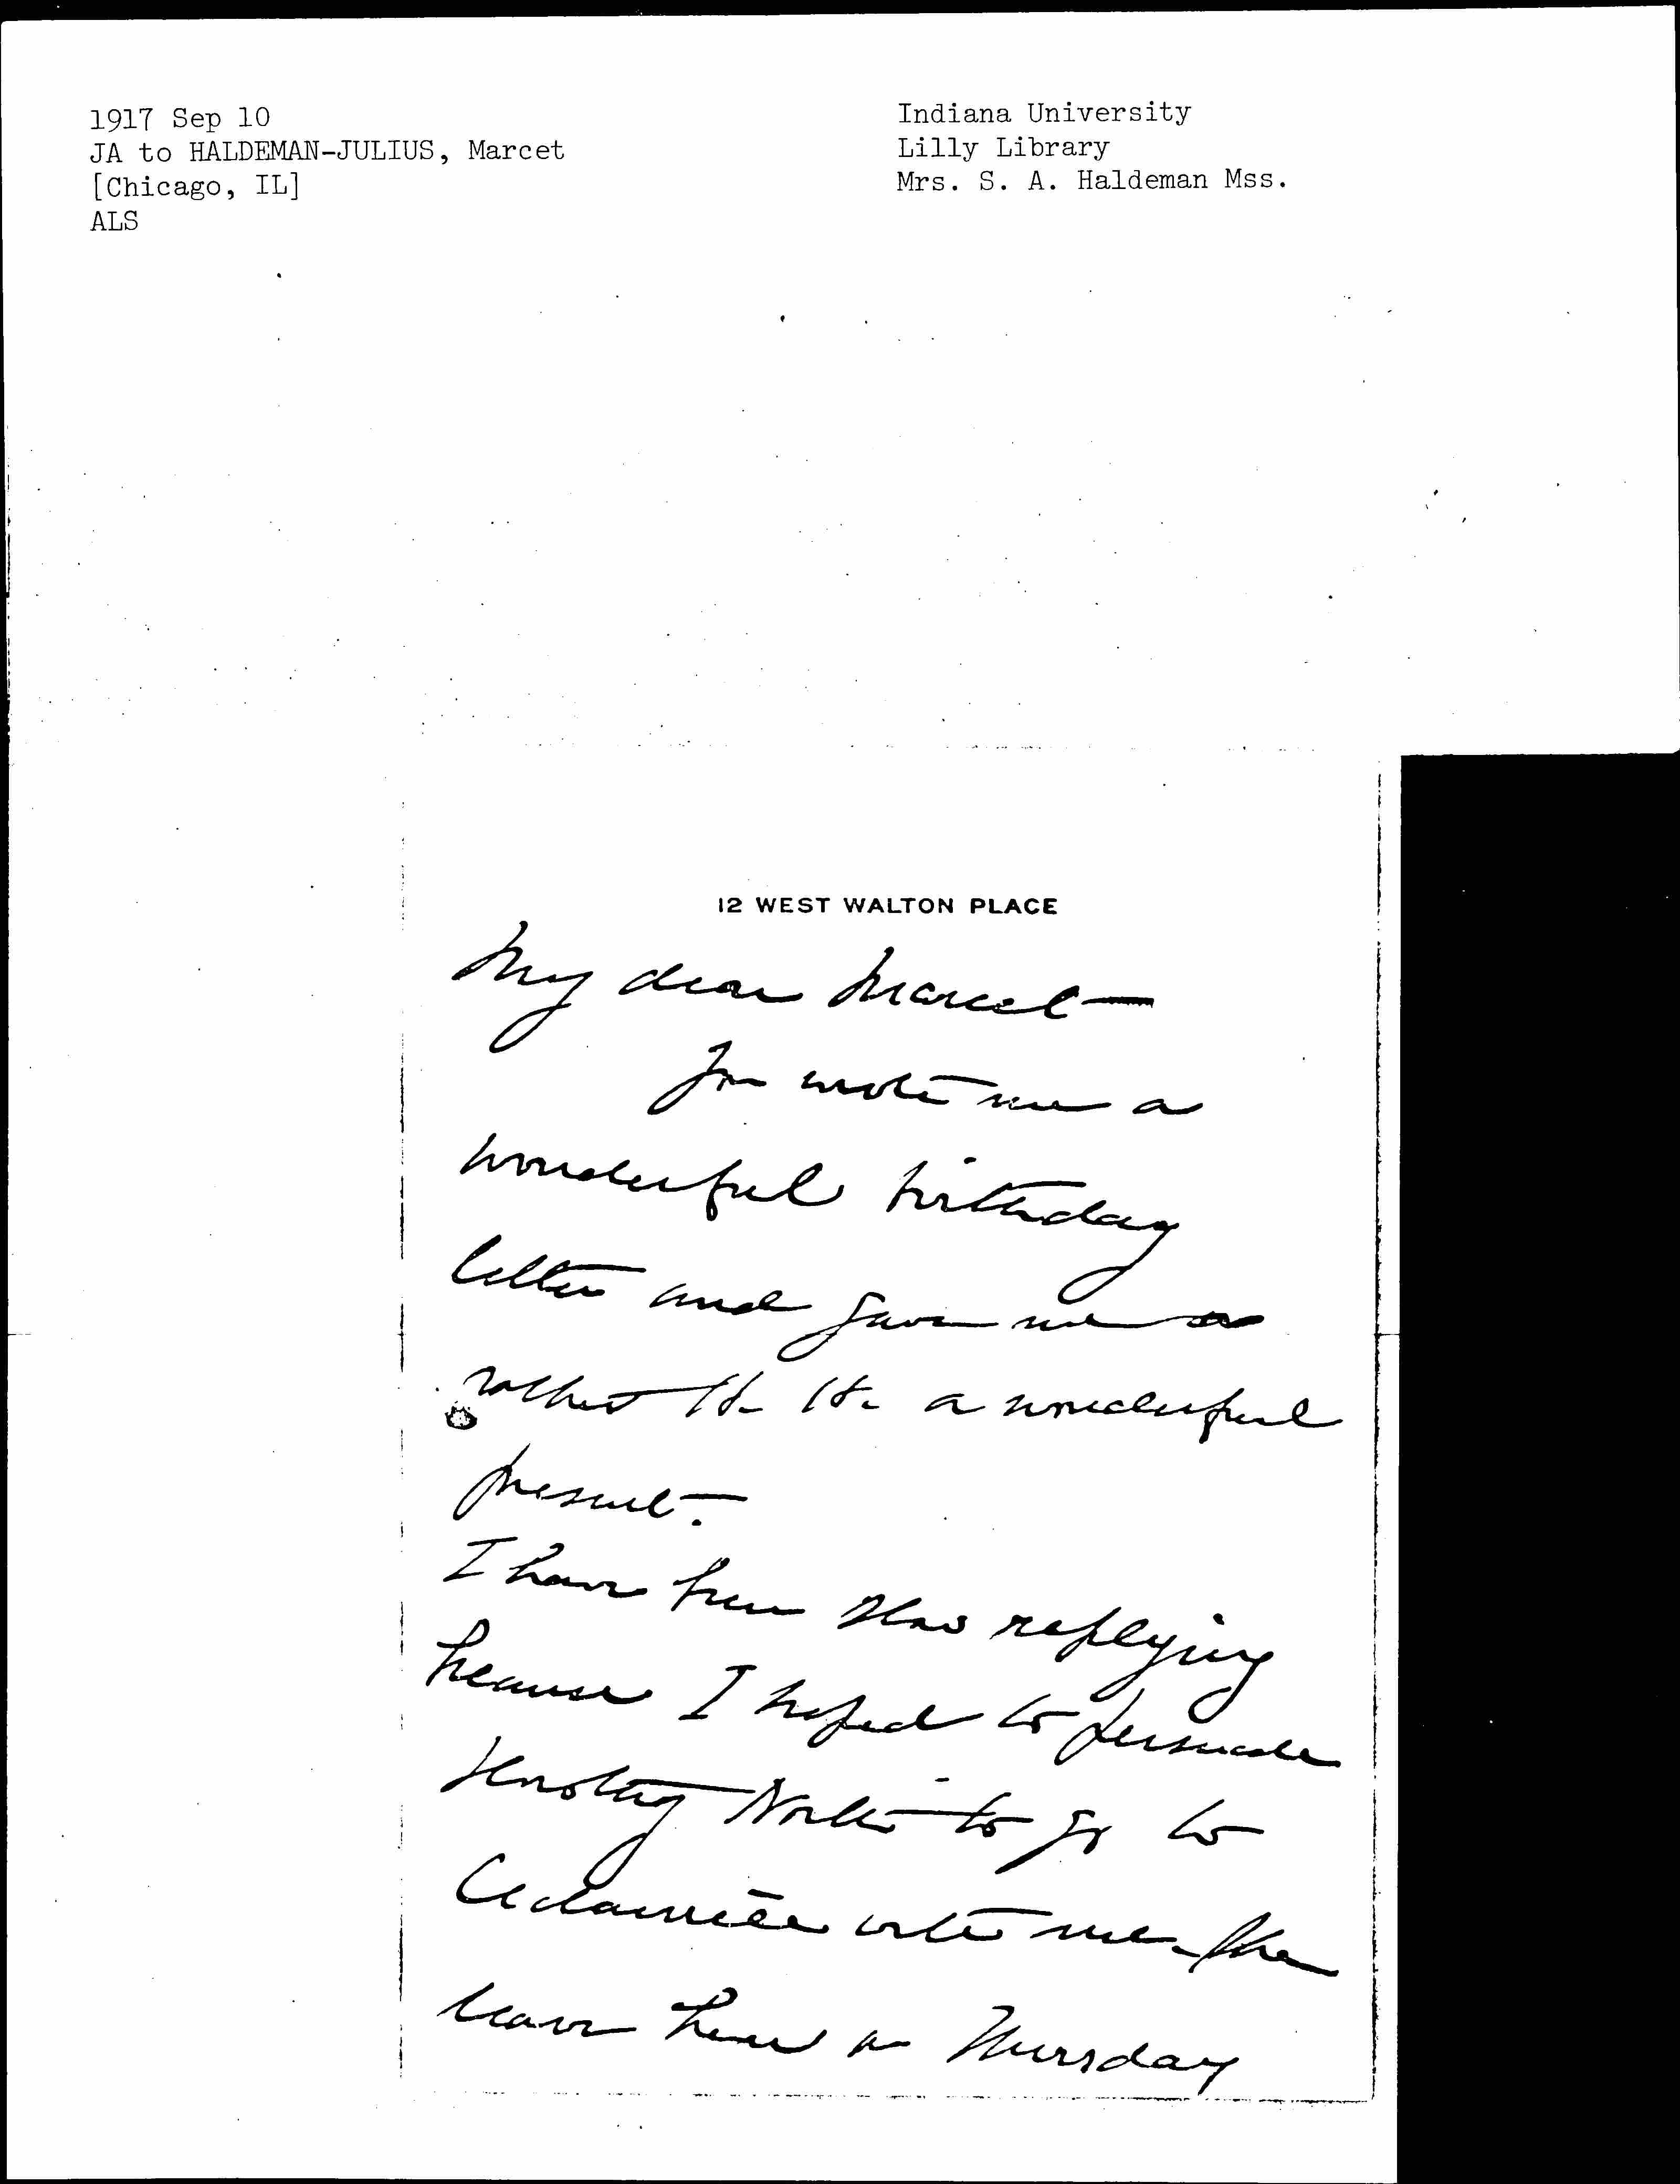 1917 Sep 10
JA to HALDEMAN-JULIUS, Marcet
[Chicago, IL]
ALS
Indiana University
Lilly Library
Mrs. S. A. Haldeman Mss.
12 WEST WALTON PLACE
My dear Marcet—
You wrote me a
wonderful birthday
letter and gave me a
rather a wonderful
present.
I have been slow replying
because I hoped to persuade
to go to
with me. She
leave here on Thursday